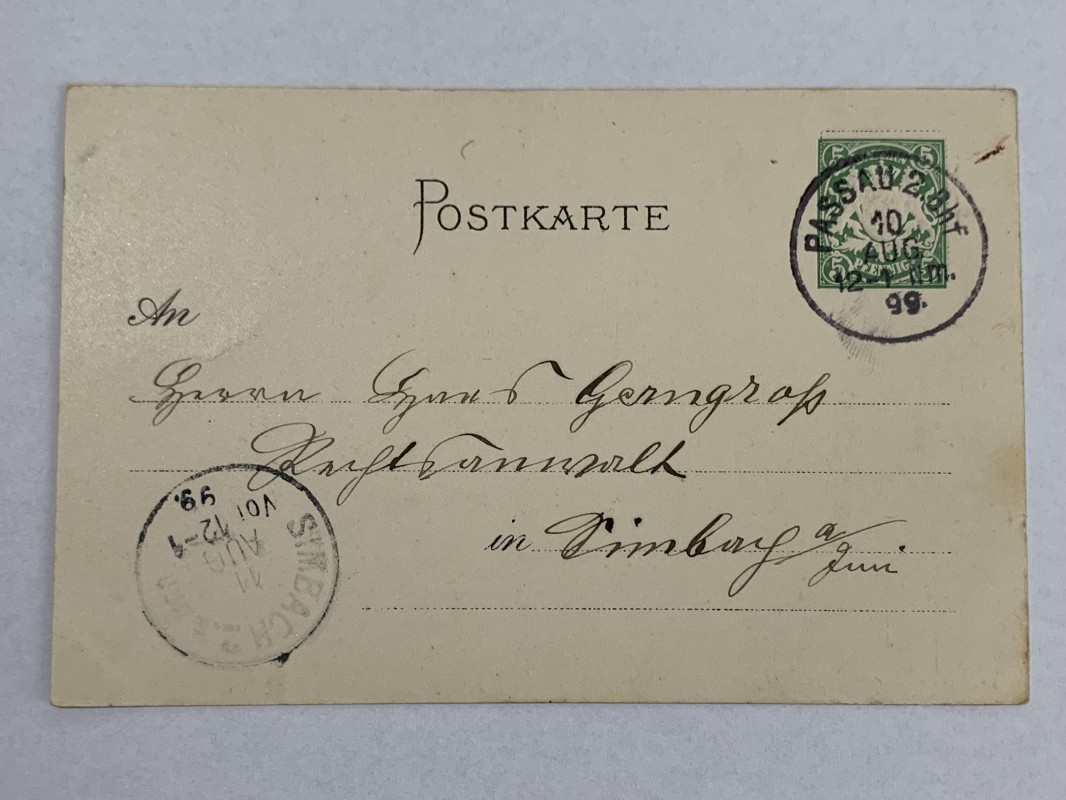 POSTKARTE
5 5
PFENNIG
5 5
PASSAU 2 Bhf
10
AUG
12-1 Nm.
99.
An
Herrn Hans Gerngroß
Rechtsanwalt
in Simbach a/Inn
SIMBACH
11
AUG
12-1
VOR
99.